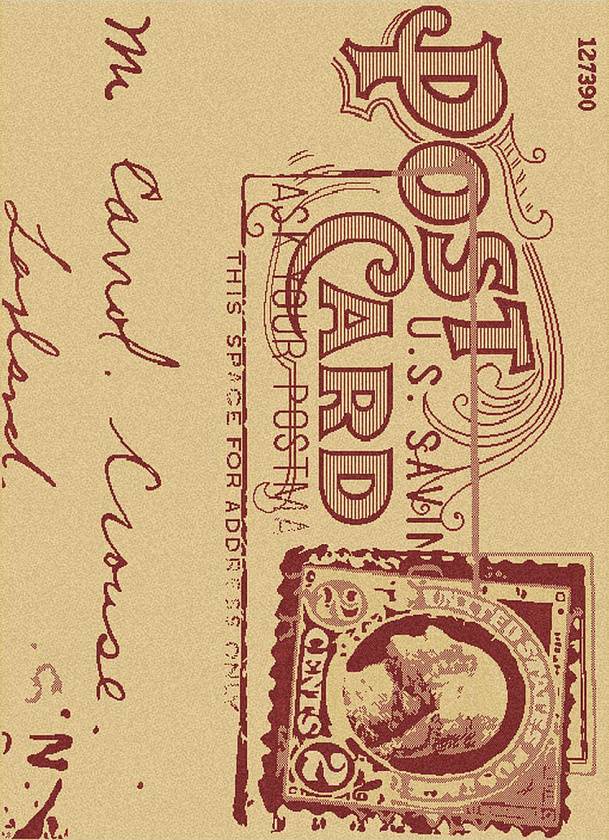 127390
POST
CARD
U.S. SAVIN
ASK YOUR POSTMA
THIS SPACE FOR ADDRESS ONLY
UNITED STATES
2 CENTS 2
M Carrol. Crouse
N